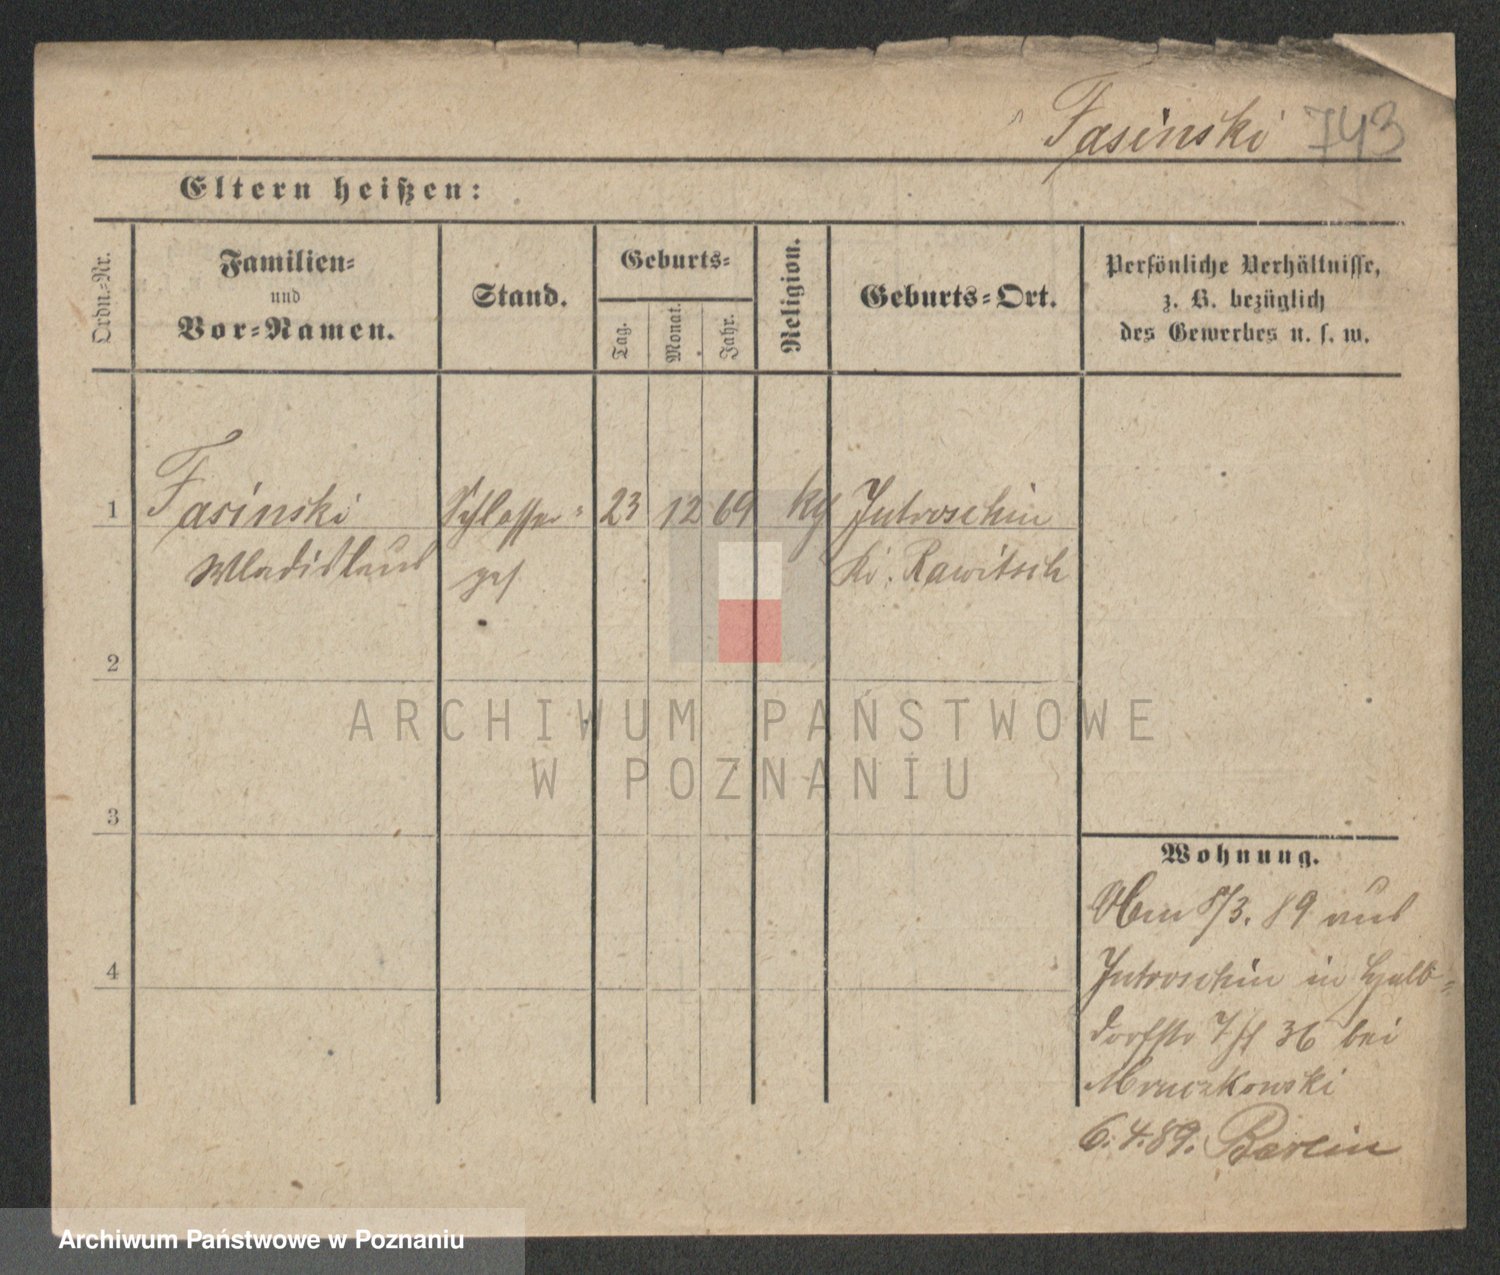 Fasinski 743
Eltern heißen:
Ordn.-Nr.
Familien-
und
Vor-Namen.
Stand.
Geburts-
Tag.
Monat.
Jahr.
Religion.
Geburts-Ort.
Persönliche Verhältnisse,
z. B. bezüglich
des Gewerbes u. s. w.
1 Fasinski Schlosser- 23 12 69 kg Jutroschin
Wladislaus ges Kr. Rawitsch
2
ARCHIWUM PAŃSTWOWE
W POZNANIU
3
Wohnung.
/3. 89 aus
4
Jutroschin in Halb-
dorfstr 36 bei
Mruczkowski
6.4.89. Berlin
Archiwum Państwowe w Poznaniu